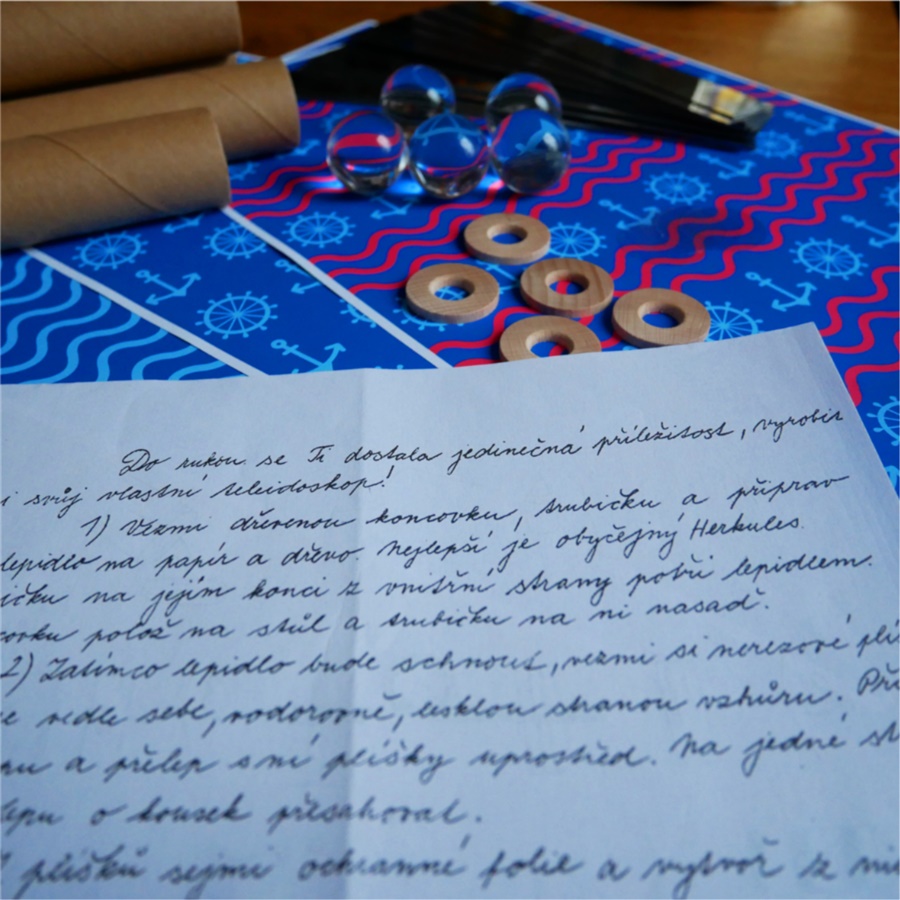 Do rukou se Ti dostala jedinečná příležitost, vyrobit
i svůj vlastní teleidoskop!
1) Vezmi dřevenou koncovku, trubičku a připrav
lepidlo na papír a dřevo. Nejlepší je obyčejný Herkules.
ičku na jejím konci z vnitřní strany potři lepidlem.
covku polož na stůl a trubičku na ni nasaď.
2) Zatímco lepidlo bude schnout, vezmi si nerezové plí
e vedle sebe, vodorovně, lesklou stranou vzhůru. Při
nu a přelep s ní plíšky uprostřed. Na jedné st
lepu o kousek přesahovat.
plíšků sejmi ochranné folie a vytvoř z ni